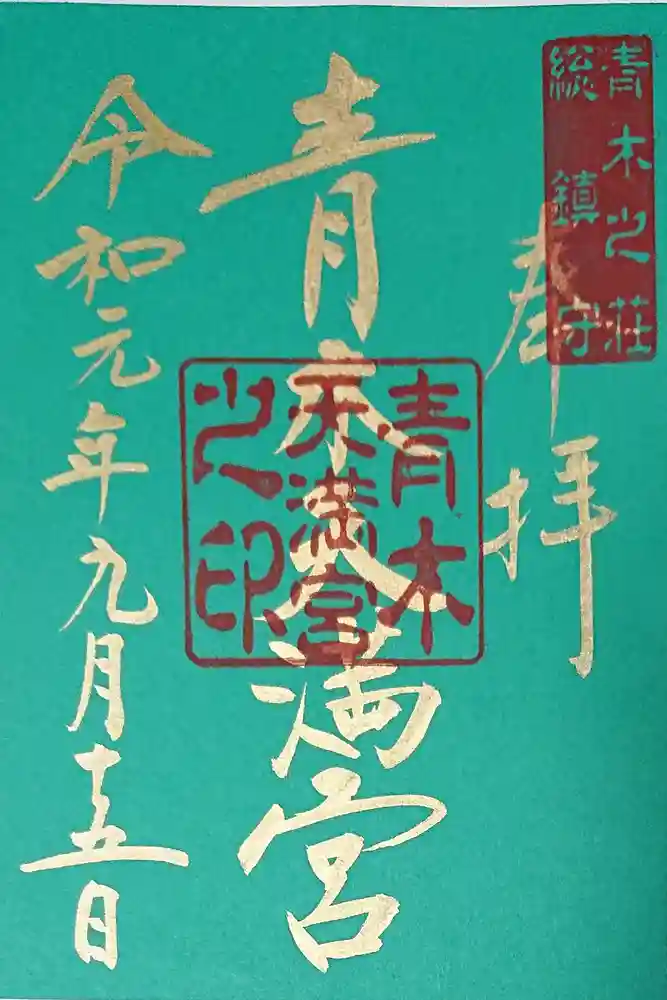 青木之荘
総鎮守
奉拝
青木天満宮
青木
天満宮
之印
令和元年九月十五日